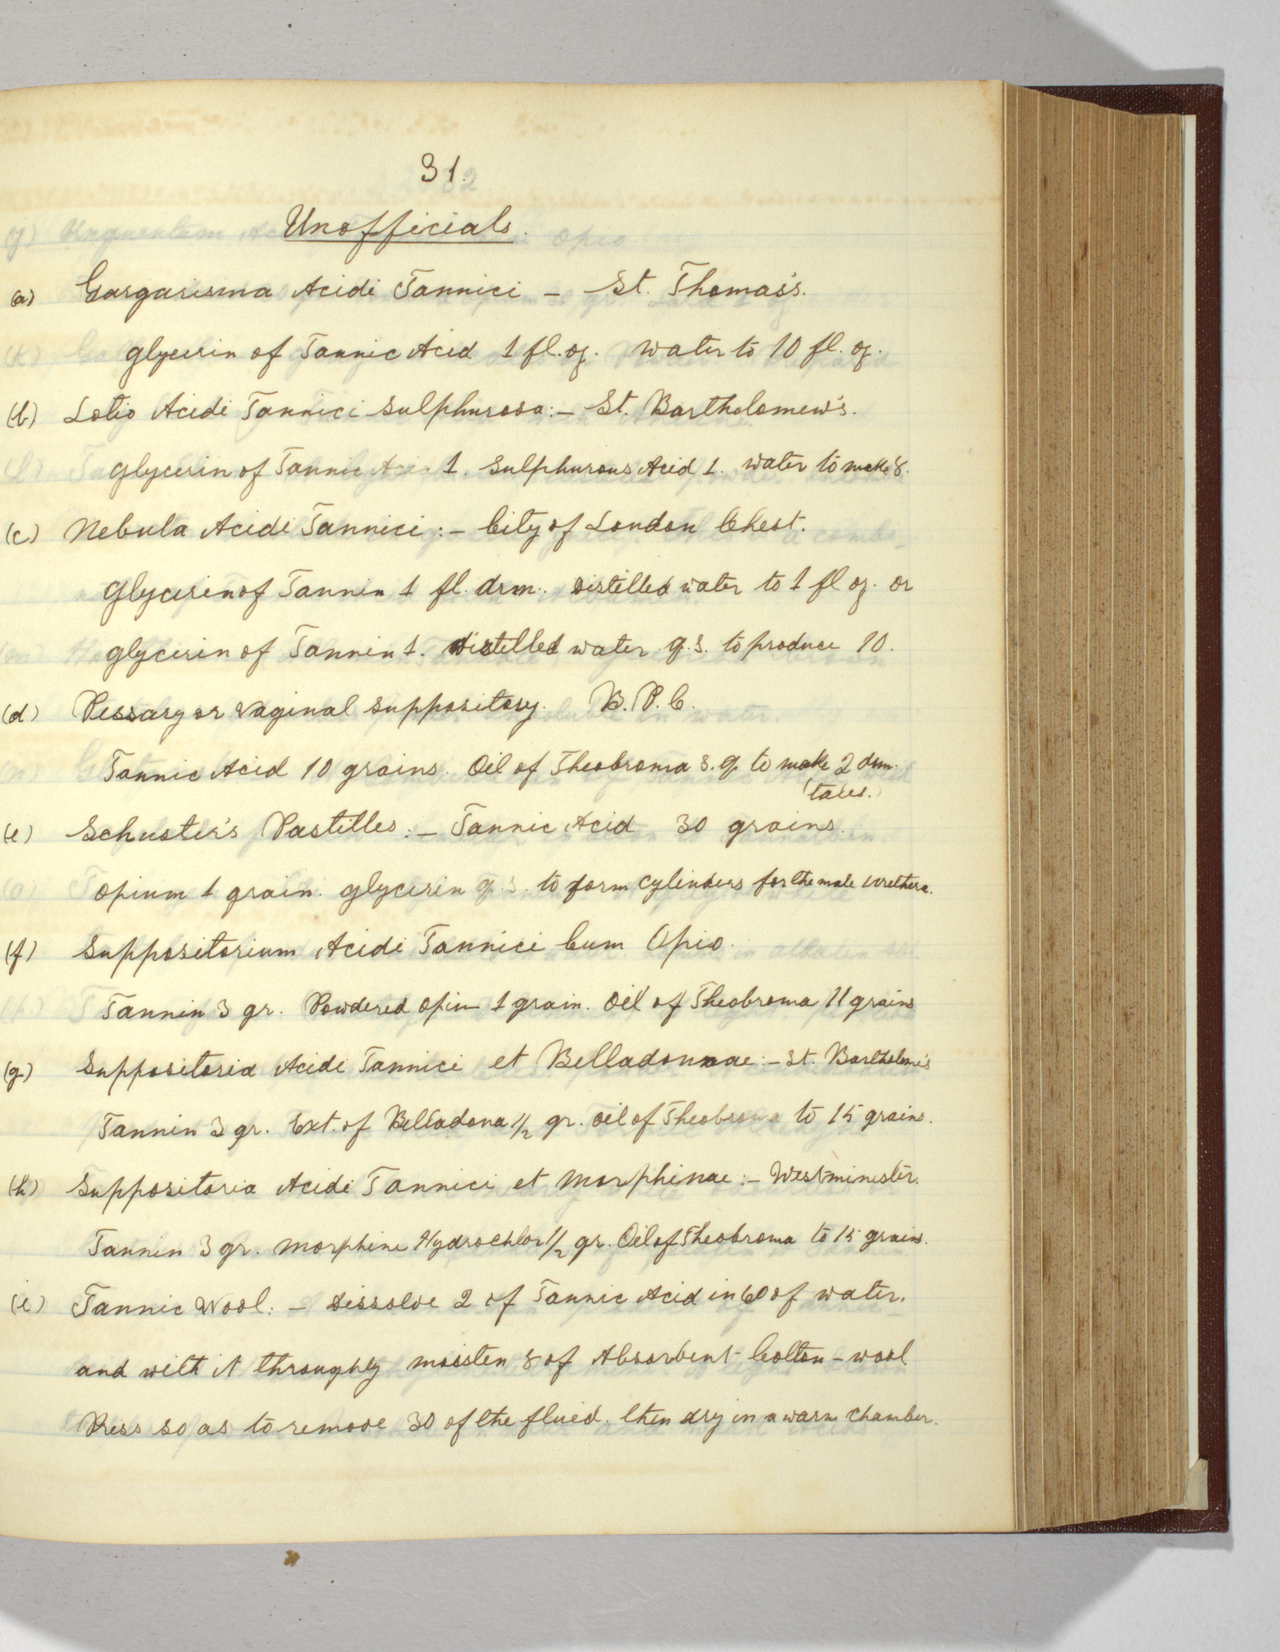 31.
Unofficials.
(a) Gargarisma Acidi Tannici – St. Thomas's.
glycerin of Tannic Acid 1 fl. oz. water to 10 fl. oz.
(b) Lotio Acidi Tannici Sulphurosa:– St. Bartholomew's.
glycerin of Tannic Acid 1. Sulphurous Acid 1. water to make 8.
(c) Nebula Acidi Tannici:– City of London Chest.
Glycerin of Tannin 1 fl. drm. distilled water to 1 fl oz. or
glycerin of Tannin 1. distilled water q.s. to produce 10.
(d) Pessary or Vaginal Suppository. B.P.C.
Tannic Acid 10 grains. Oil of Theobroma s.q. to make 2 drm.
(e) Schuster's Pastilles:– Tannic Acid 30 grains.
Opium 1 grain. glycerin q.s. to form cylinders for the male urethera.
(f) Suppositorium Acidi Tannici Cum Opio.
Tannin 3 gr. Powdered opium 1 grain. Oil of Theobroma 11 grains
(g) Suppositoria Acidi Tannici et Belladonnae:– St. Bartholomew's
Tannin 3 gr. Ext. of Belladona 1/2 gr. oil of Theobroma to 15 grains.
(h) Suppositoria Acidi Tannici et Morphinae:– Westminister.
Tannin 3 gr. Morphine Hydrochlor 1/2 gr. Oil of Theobroma to 15 grains.
(i) Tannic Wool:– dissolve 2 of Tannic Acid in 60 of water.
and with it throughly moisten 8 of Absorbent Cotton-wool
Press so as to remove 30 of the fluid. then dry in a warm chamber.